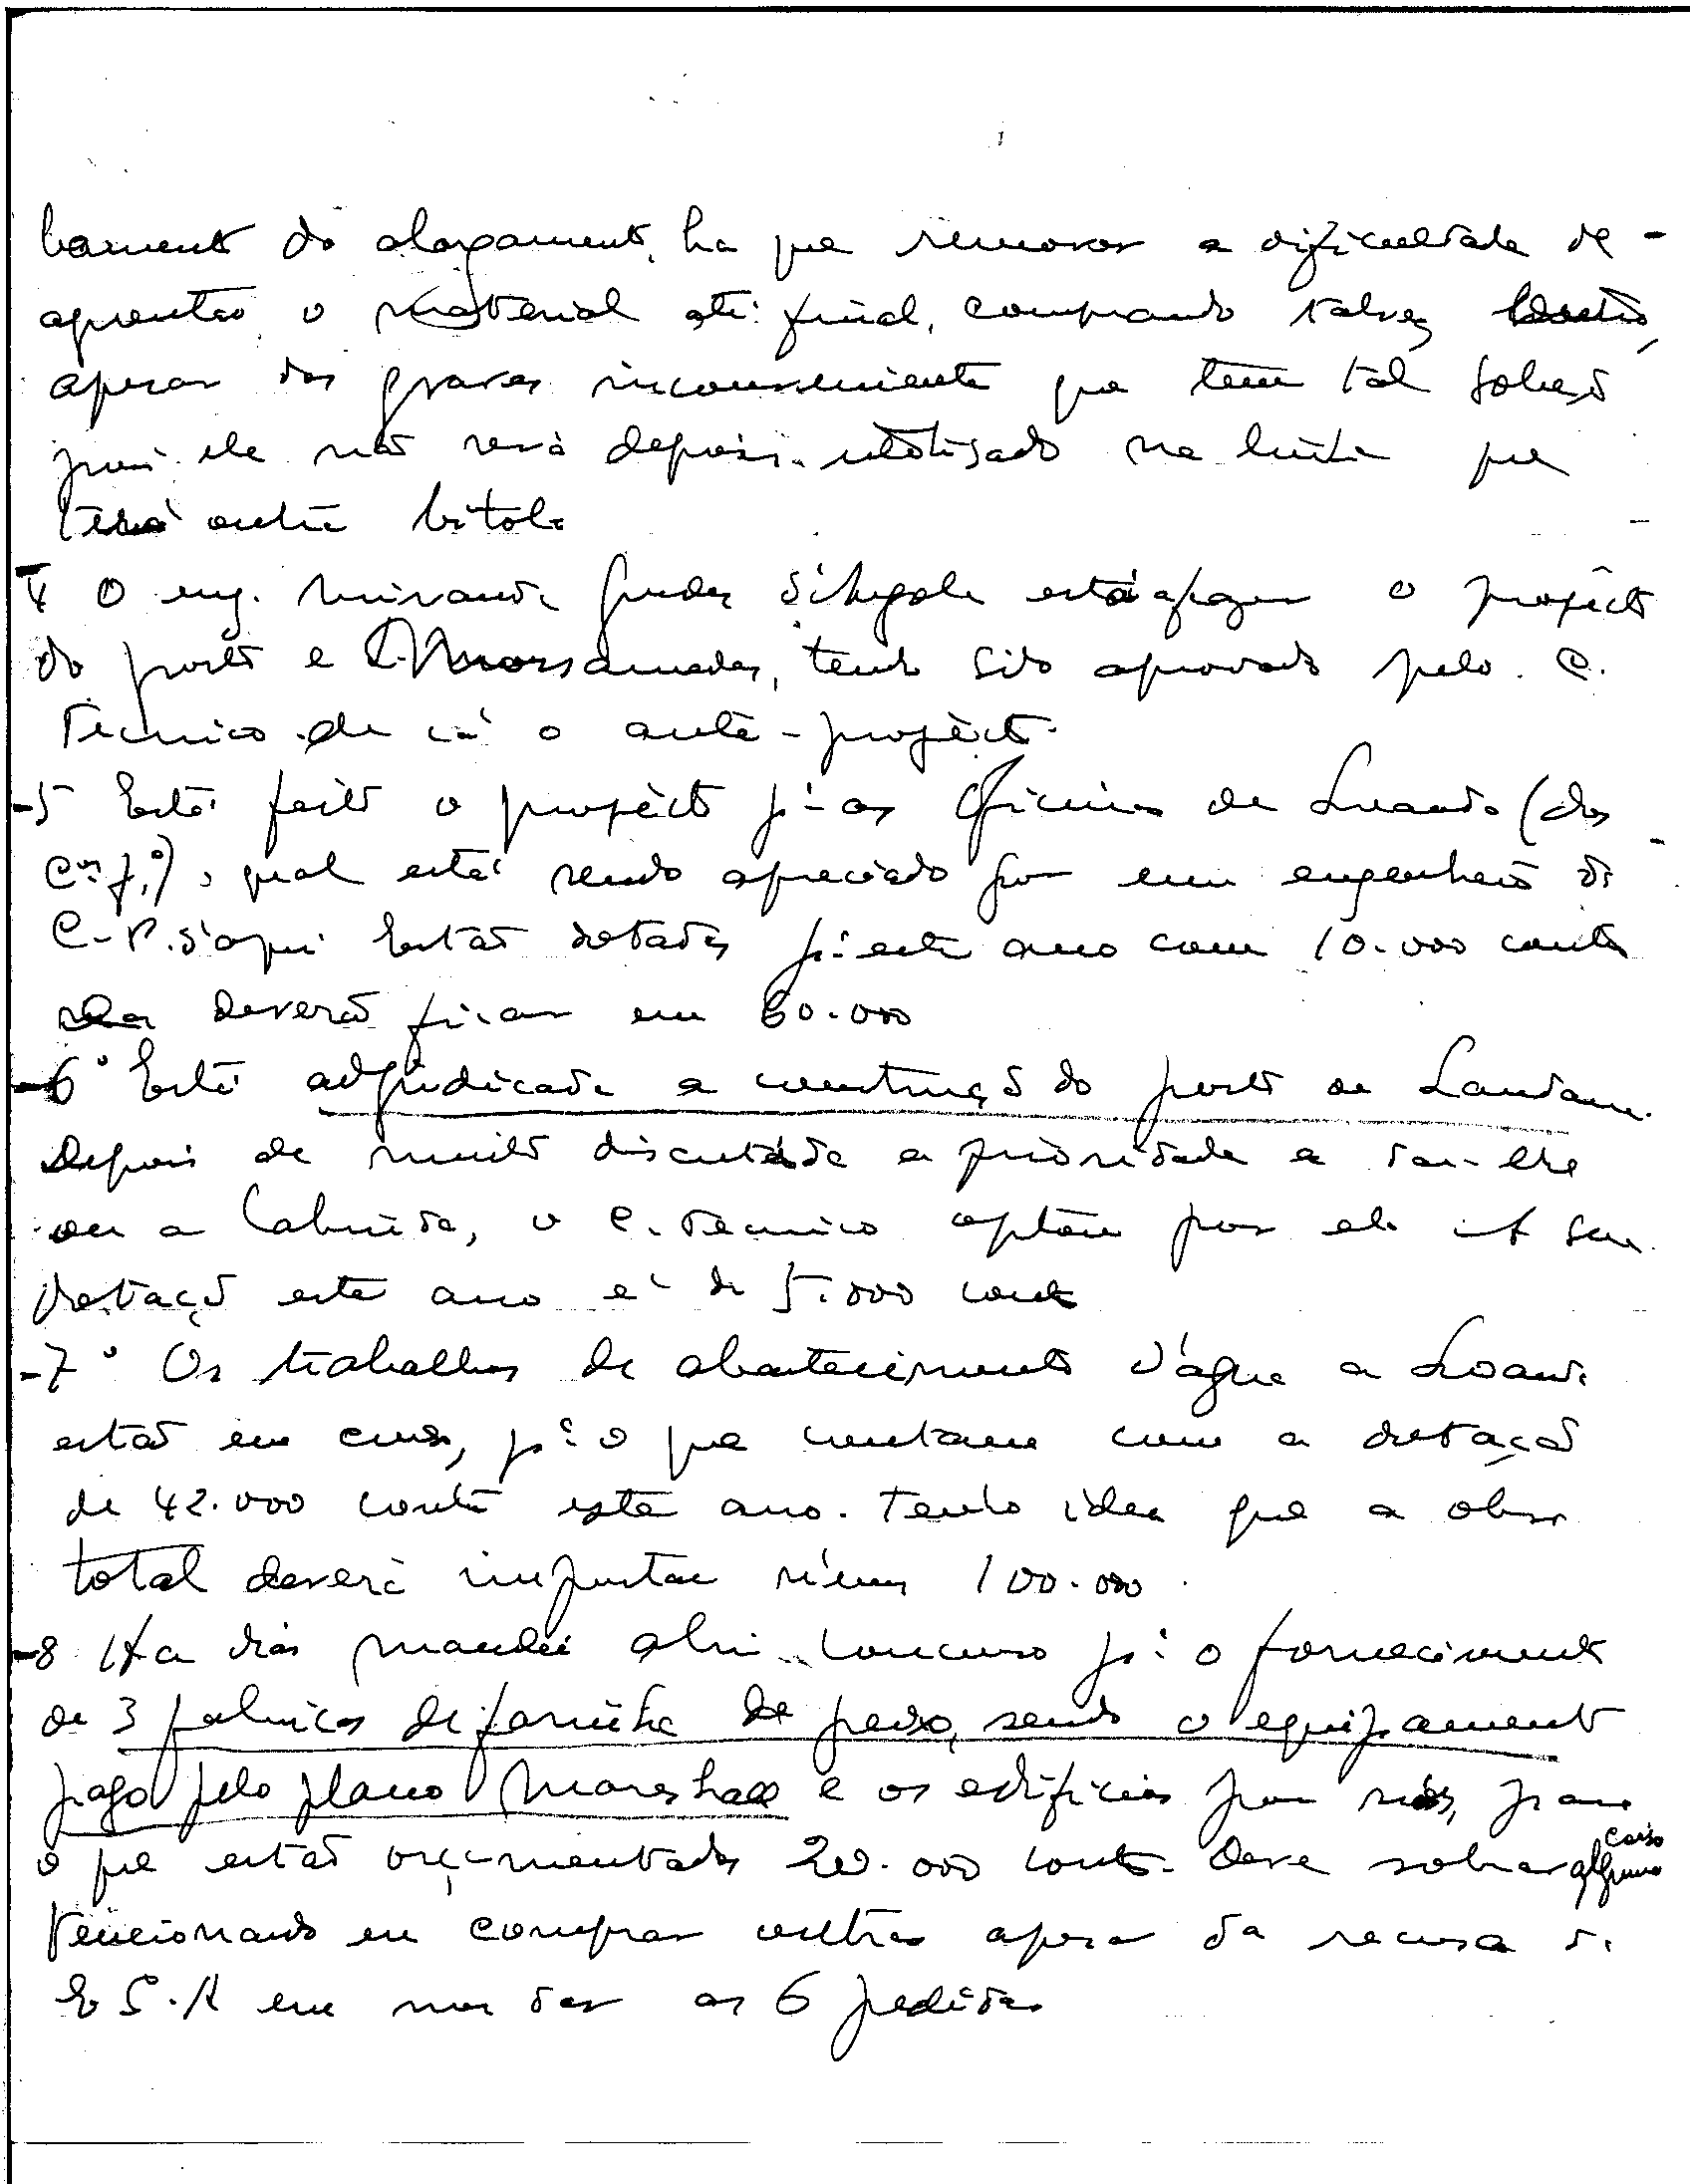 bamento do alargamento, ha que remover a dificuldade de
aguentar o material até final, comprando talvez
apesar dos graves inconvenientes que tem tal solução
pois ele não será depois utilisado na linha que
terá outra bitola
4 O eng. Miranda Guedes está a fazer o projecto
do porto e Mossamedes, tendo sido aprovado pelo C.
Tecnico de cá o ante-projecto.
-5 Está feito o projecto pª as Oficinas de Luanda (dos
C.os f.o), o qual está sendo apreciado por um engenheiro da
C.P. d'aqui Estão dotadas pª este ano com 10.000 contos
deverão ficar em 60.000
-6º Está adjudicada a construção do porto de Landana.
Depois de muito discutida a prioridade a dar-lhe
ou a Cabinda, o C. Tecnico optou por ele A sua
dotação este ano é de 5.000 contos
-7º Os trabalhos de abastecimento d'água a Loanda
estão em curso, pª o que contam com a dotação
de 42.000 contos este ano. Tenho idea que a obra
total deverá importar n'uns 100.000.
-8 Ha dias mandei abrir concurso pª o fornecimento
de 3 fabricas de farinha de peixe, sendo o equipamento
pago pelo plano Marshall e os edificios por nós, para
o que estão orçamentados 20.000 contos. Deve sobrar alguma coisa
tencionando eu comprar outras apesar da recusa da
E.C.A em nos dar as 6 pedidas